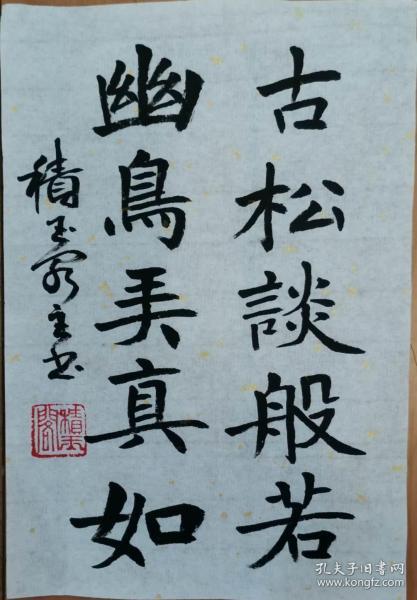 古松談般若
幽鳥弄真如
積玉主书
孔夫子旧书网
www.kongfz.com